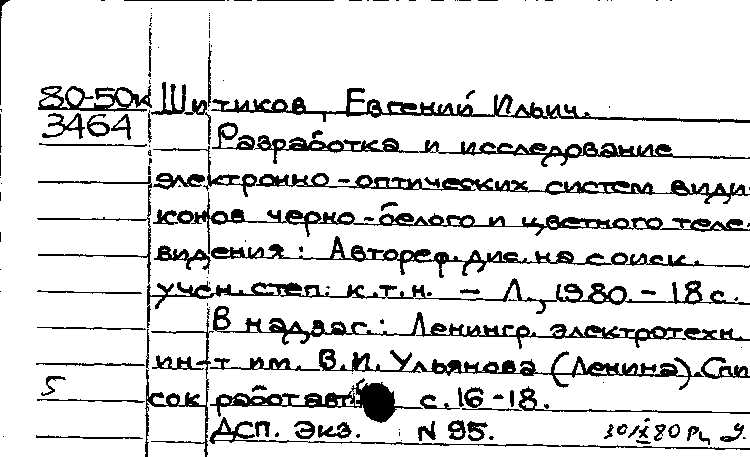 80-50к Шитиков, Евгений Ильич.
3464 Разработка и исследование
электронно-оптических систем види-
конов черно-белого и цветного теле-
видения: Автореф. дис. на соиск.
учен. степ. к.т.н. - Л., 1980. - 18 с.
В надзаг.: Ленингр. электротехн.
ин-т им. В.И. Ульянова (Ленина). Спи
5 сок работ авт с. 16-18.
ДСП. Экз. N 95.